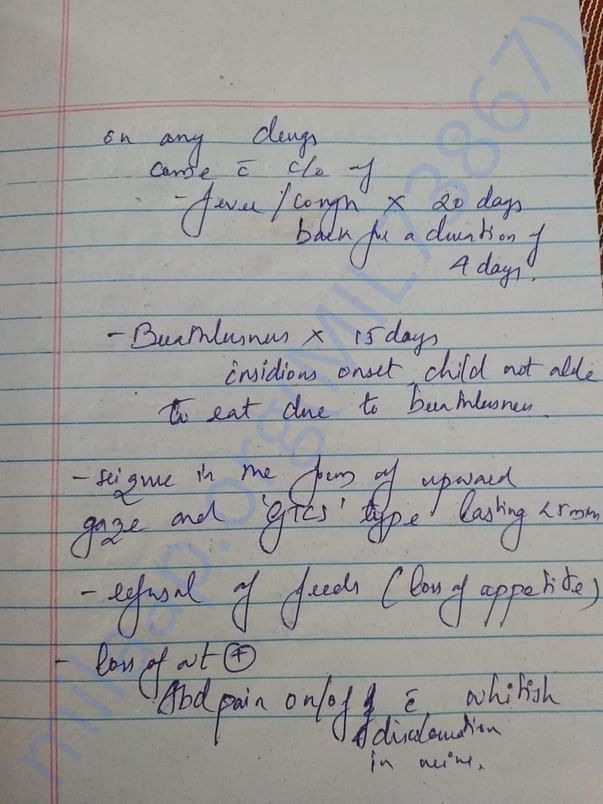 on any drugs
came c̄ c/o of
- fever / cough × 20 days
back for a duration of
4 days.
- Breathlessness × 15 days
insidious onset, child not able
to eat due to breathlessness.
- seizure in the form of upward
gaze and 'GTCS' type lasting <5 min
- refusal of feeds (loss of appetite)
- loss of wt ⊕
Abd pain on/off c̄ whitish
discolouration
in urine.
milaap.org(MIL73867)